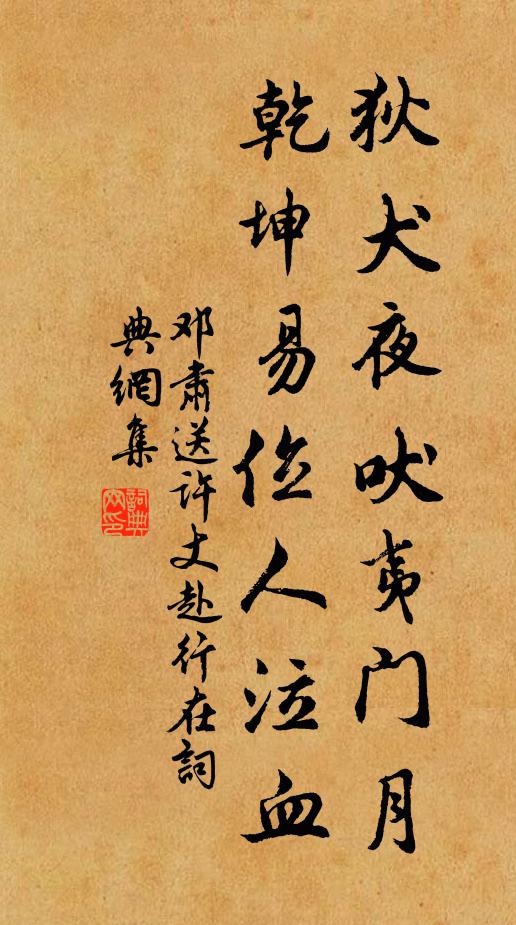 狄犬夜吠夷门月
乾坤易位人泣血
邓肃送许丈赴行在詞
典網集
詞典网印